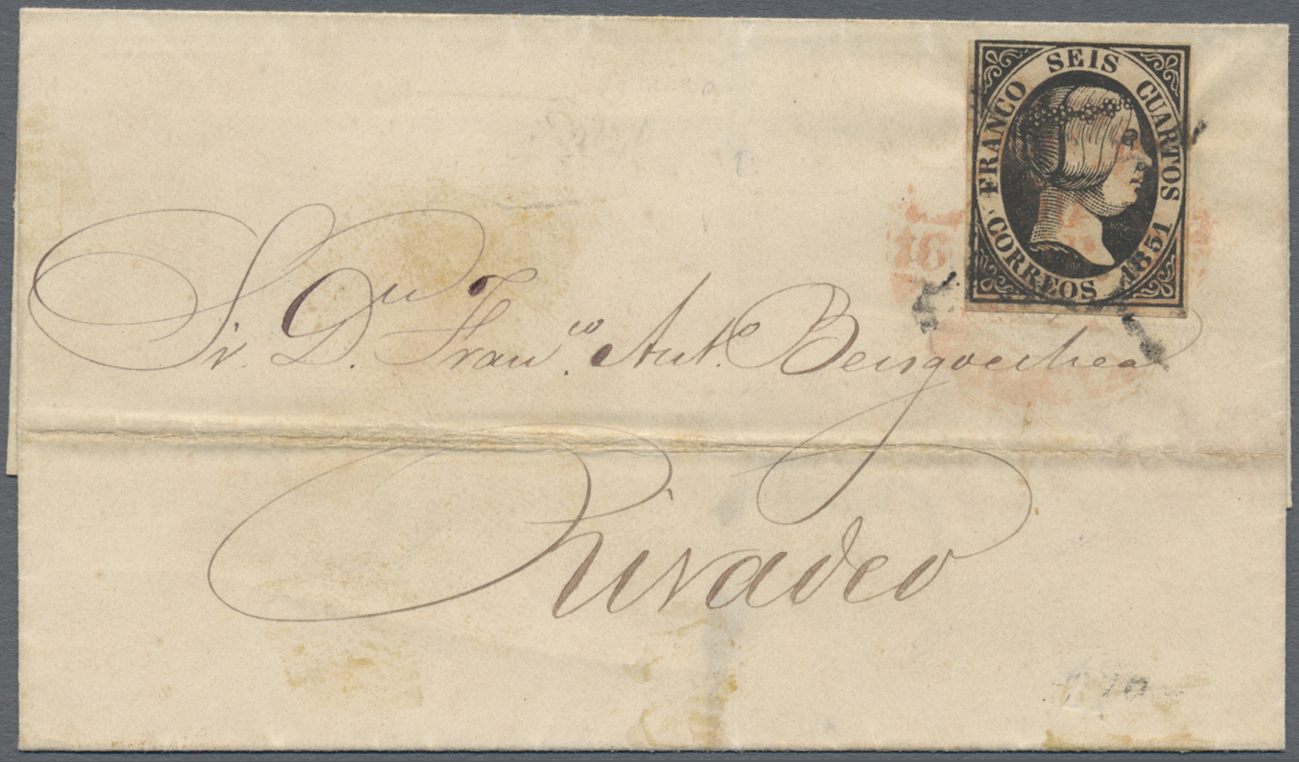 FRANCO SEIS CUARTOS
CORREOS 1851
16
Sr. Dn. Franco. Anto. Bengoechea
Rivadeo